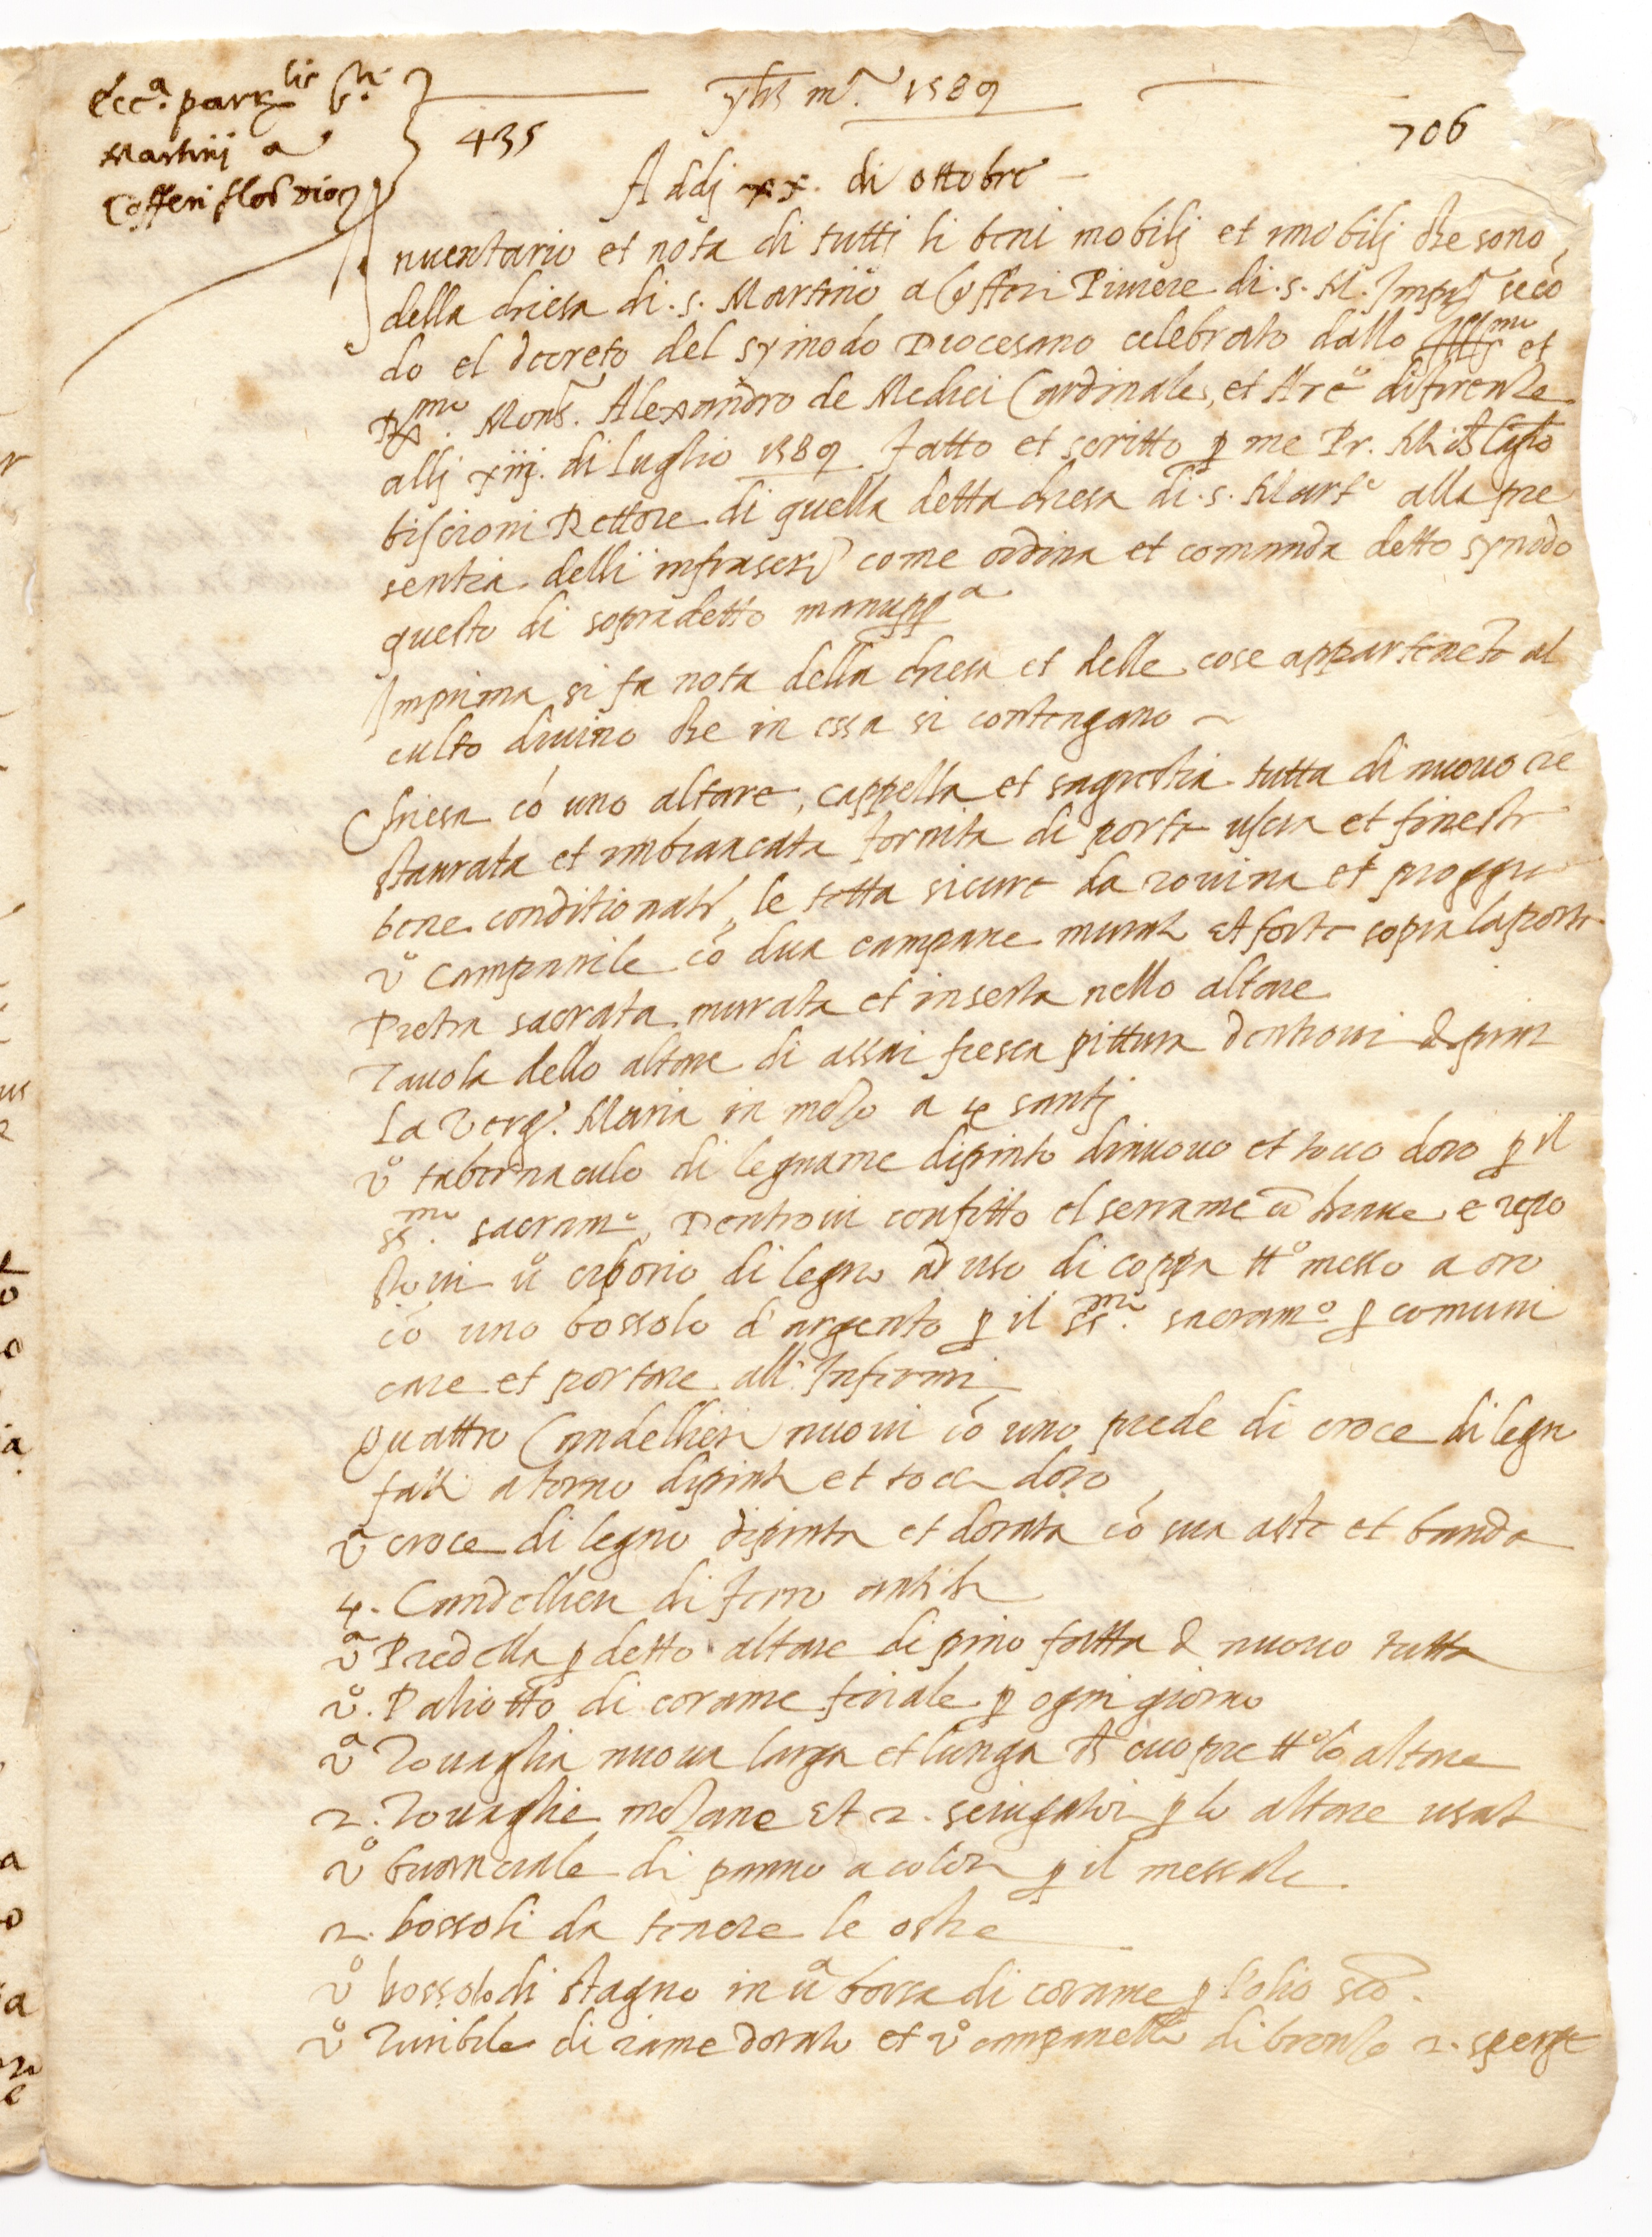 Ecc.a parr.lis S.ti
Martinj a
Cofferi flor. dioc.
yhs m.a 1589
435
706
Addj xx. di ottobre
Inuentario et nota di tuttj li beni mobilj et imobilj che sono
della chiesa di .s. Martino a Cofferi Piuiere di .s. M. Imp.ta secō
do el decreto del synodo Diocesano celebrato dallo Ill.mo et
R.mo Mons. Alexandro de Medici Cardinale, et Are.o di firenze
allj xiij. di luglio 1589. fatto et scritto p me Pr.
biscioni Rettore di quella detta chiesa di .s. Mart.o alla pre
sentia delli infrascri come ordina et comanda detto synodo
questo di sopradetto manupp.a
Imprima si fa nota della chiesa et delle cose appartenetj al
culto diuino che in essa si contengano
Chiesa cō uno altare, cappella et sagrestia tutta di nuouo re
staurata et imbiancata fornita di porte uscia et finestr
bene conditionate, le tetta sicure da rouina et pioggie
vo campanile cō dua campane murate et forte sopra la porta
Pietra sacrata murata et inserta nello altare
Tauola dello altare di assai fresca pittura dentroui dipint
La Verg. Maria in mezo a 4 santj
vo tabernaculo di legname dipinto dinuouo et toco doro p il
ss.mo sacram.o, Dentroui confitto el serrame cō chiaue e repo
stoui uo ciborio di legno ad uso di coppa tt.o messo a oro
cō uno bossolo d'argento p il ss.mo sacram.o p comuni
care et portare all'Infermi
Quattro Candellieri nuoui cō uno piede di croce di legno
fatti a torno dipinti et tocchi doro
va croce di legno dipinta et dorata cō sua aste et banda
4. Candellieri di ferro antichi
va Predella p detto altare di pino fatta d nuouo tutta
vo. Paliotto di corame feriale p ogni giorno
va Touaglia nuoua larga et lunga ch cuopre tt.o lo altare
2. Touaglie mezane et 2. sciugatoi p lo altare usati
vo Guanciale di panno a colori p il messale.
2. bossoli da tenere le ostie
vo bossolo di stagno in ua borsa di corame p l'olio sco.
vo Turibile di rame dorato et vo campanello di bronzo 2. sperge